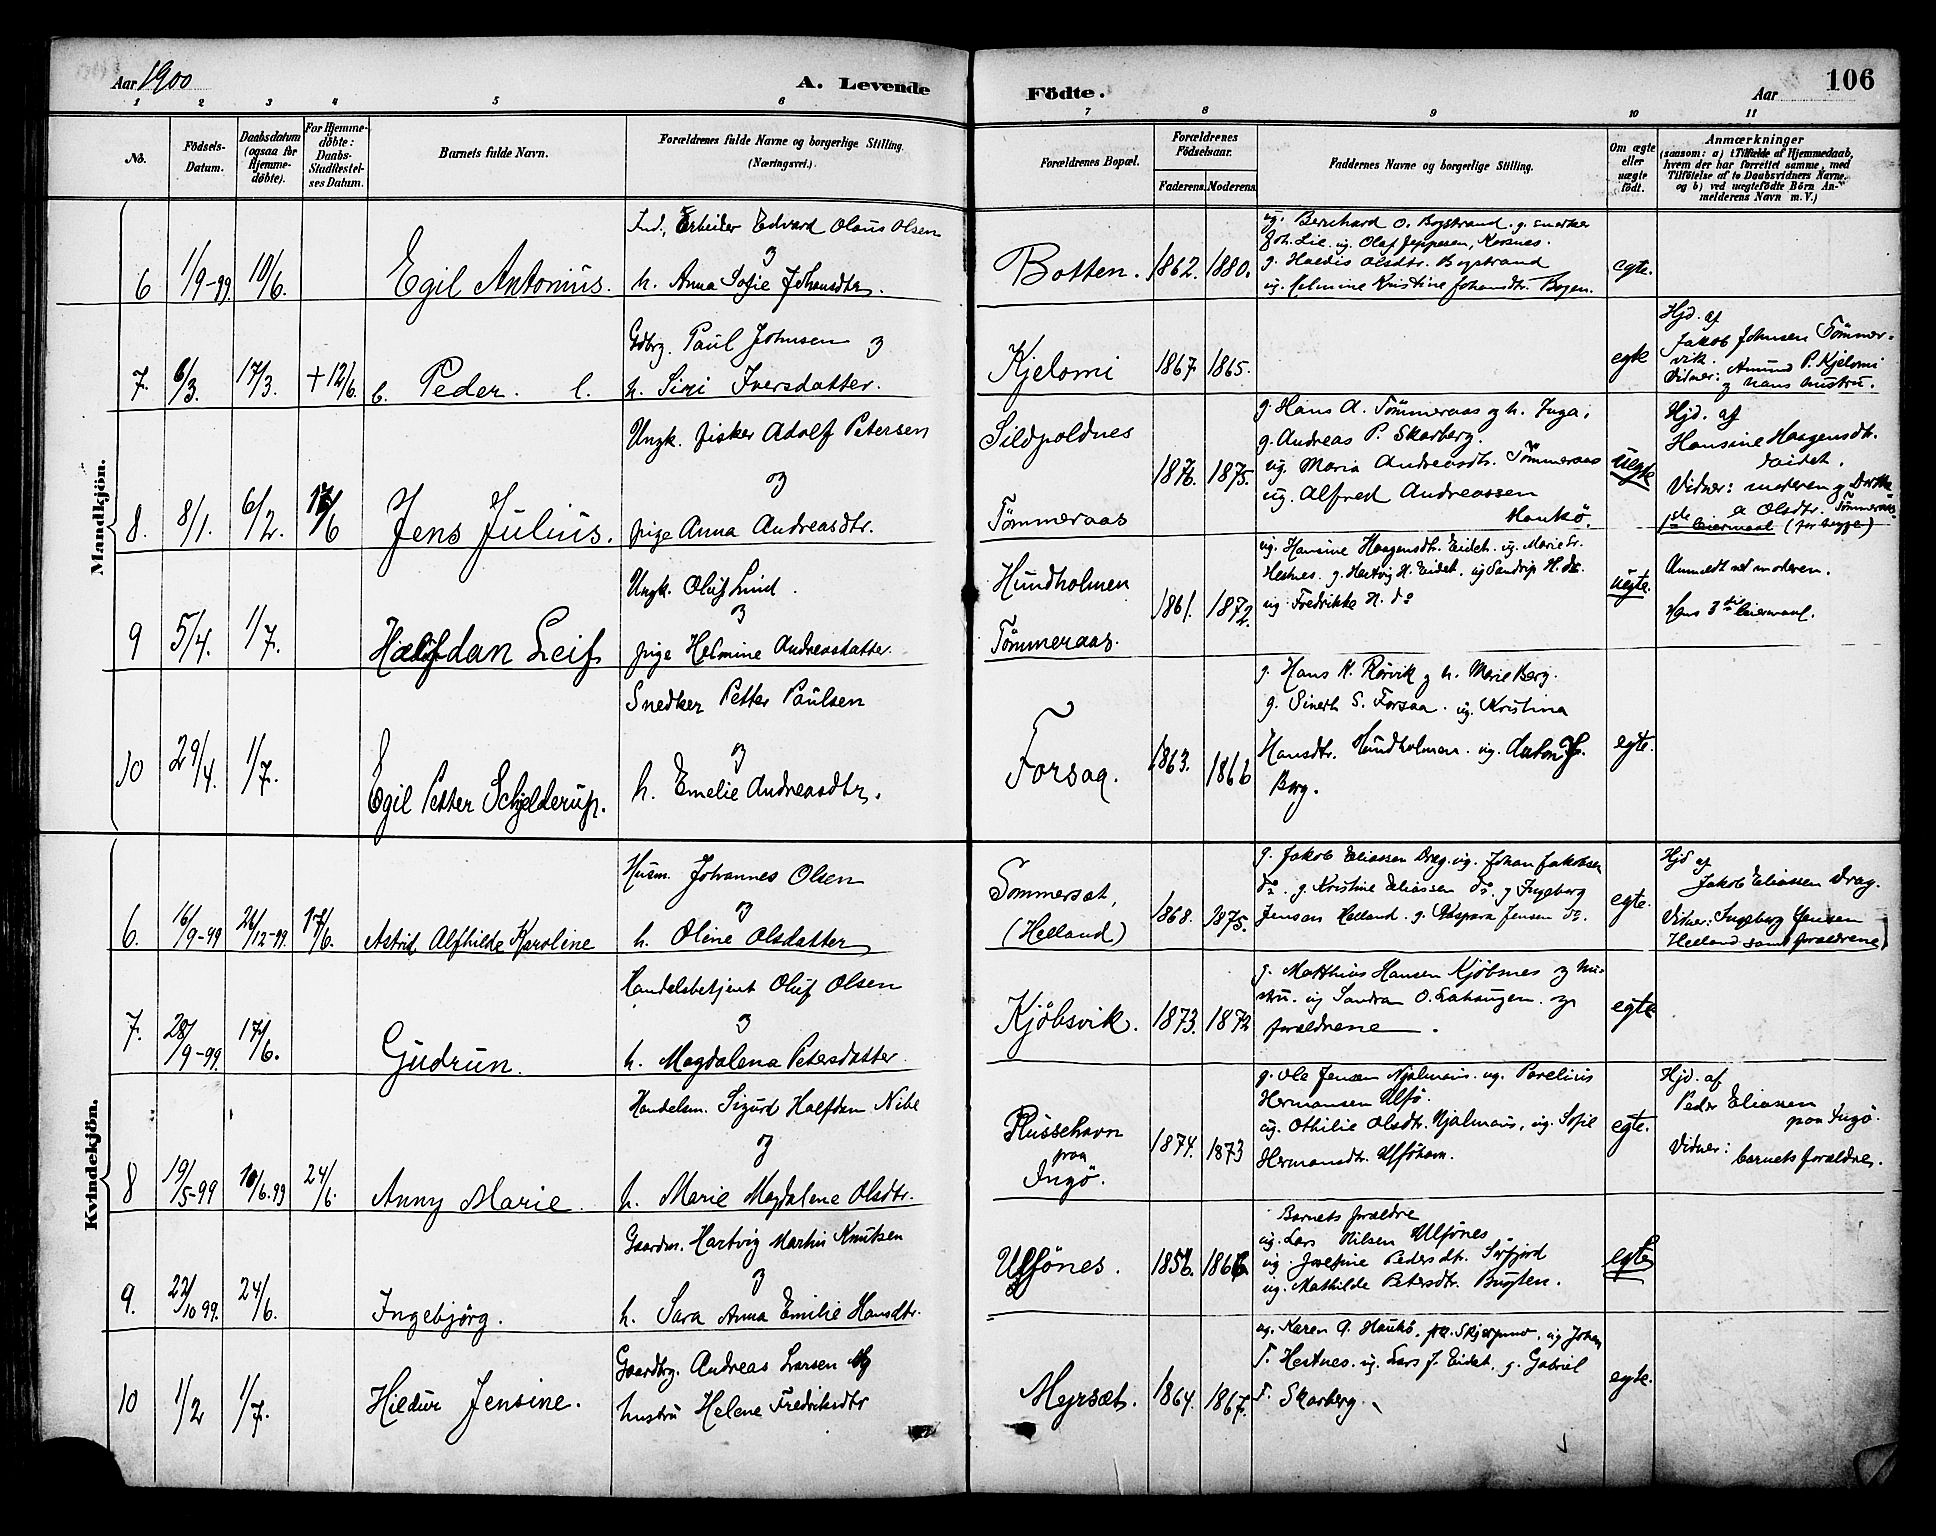 Aar 1900
A. Levende
Födte.
Aar
106
1 2 3 4 5 6 7 8 9 10 11
No.
Födsels-
Datum.
Daabsdatum
(ogsaa for
Hjemme-
döbte).
For Hjemme-
döbte:
Daabs-
Stadfæstel-
ses Datum.
Barnets fulde Navn.
Forældrenes fulde Navne og borgerlige Stilling.
(Næringsvei.)
Forældrenes Bopæl.
Forældrenes
Födselsaar.
Faderens. Moderens.
Faddernes Navne og borgerlige Stilling.
Om ægte
eller
uægte
födt.
Anmærkninger
(saasom: a) i Tilfælde af Hjemmedaab,
hvem der har forrettet samme, med
Tilföielse af to Daabsvidners Navne,
og b) ved uægtefödte Börn An-
melderens Navn m. V.)
Mandkjön.
6 1/9-99. 10/6. Egil Antonius.
Ind., Arbeider Edvard Olaus Olsen
og
h. Anna Sofie Johansdtr.
Botten. 1862. 1880.
ug. Bernhard O. Bogstrand. g. snedker
Joh. Lie. ug. Olaf Jeppesen, Korsnes.
g. Haldis Olsdtr. Bogstrand
ug. Helmine Kristine Johansdtr. Bogen.
egte.
7. 6/3. 17/3. + 12/6. b. Peder. l.
Gdbrg. Paul Johnsen og
h. Siri Iversdatter.
Kjelomi 1867 1865.
egte
Hjd. af
Jakob Johnsen Tömmer-
vik.
Vidner: Amund P. Kjelomi
og hans hustru.
8. 8/1. 6/2. 17/6 Jens Julius.
Ungk. fisker Adolf Petersen
og
pige Anna Andreasdtr.
Sildpoldnes
Tömmeraas
1876. 1875.
g. Hans A. Tömmeraas og h. Inga.
g. Andreas P. Skarberg.
ug. Maria Andreasdtr. Tömmeraas
ug. Alfred Andreassen
Haukö.
uegte
Hjd. af
Hansine Haagensdtr.
Eidet.
Vidner: moderen og Dorthea
Olsdtr. Tömmeraas.
1ste leiermaal (for begge)
9 5/4. 1/7. Halfdan Leif
Ungk. Oluf Lind.
og
pige Helmine Andreasdatter.
Hundholmen
Tömmeraas.
1861. 1872.
ug. Hansine Haagensdtr. Eidet. ug. Marie Sr.
Hestnes. g. Hartvig H. Eidet. ug Sandrup H. do.
ug. Fredrikke H. do
uegte.
Anmeldt ved moderen.
Hans 3die leiermaal.
10 29/4. 1/7. Egil Petter Schjelderup.
Snedker Petter Paulsen
og
h. Emelie Andreasdtr.
Forsaa. 1863. 1866
g. Hans H. Rörvik og h. Marie Berg.
g. Sinerth S. Forsaa. ug. Kristina
Hansdtr. Hundholmen. ug. Anton J.
Berg.
egte.
Kvindekjön.
6. 16/9-99 26/12-99. 17/6. Astrid Alfhilde Karoline
Husm. Johannes Olsen
og
h. Oline Olsdatter
Sommerset,
(Helland)
1868. 1875.
g. Jakob Eliassen Drag. ug. Johan Jakobsen
do. g. Kristine Eliassen do. g Ingeberg
Jensen Helland. g. Kaspara Jensen do.
egte.
Hjd af
Jakob Eliassen Drag.
Vidner: Ingeberg Jensen
Helland samt forældrene.
7. 28/9-99. 17/6. Gudrun.
Handelsbetjent Oluf Olsen
og
h. Magdalena Petersdatter.
Kjöbsvik. 1873. 1872
g. Matthias Hansen Kjöbsnes og hu-
stru. ug Sandra O. Lahaugen. og
forældrene.
egte
8 19/5-99 10/6.99 24/6. Anny Marie.
Handelsm. Sigurd Halfdan Nibe
og
h. Marie Magdalene Olsdtr.
Russehavn
paa
Ingö.
1874. 1873
g. Ole Jensen Njalmais. ug. Parelius
Hermansen Ulfö.
ug. Othilie Olsdtr. Njalmais, ug. Sofie
Hermansdtr. Ulföhavn.
egte.
Hjd. af
Peder Eliasen
paa Ingö.
Vidner:
barnets forældre.
9. 22/10 99. 24/6. Ingebjörg.
Gaardm. Hartvig Martin Knutsen
og
h. Sara Anna Emilie Hansdtr.
Ulfönes. 1856. 1866
Barnets forældre
ug. Lars Nilsen Ulfönes
ug. Josefine Pedersdtr. Sörfjord
ug. Mathilde Petersdtr. Bugten.
egte
10 1/2 1/7. Hildur Jensine.
Gaardbrg. Andreas Larsen og
hustru Helene Fredriksdtr
Hejrsæt. 1864. 1867.
ug. Karen A. Haukö, ug Johan
T. Hestnes. ug. Lars J. Eidet. g. Gabriel
T. Skarberg.
egte.